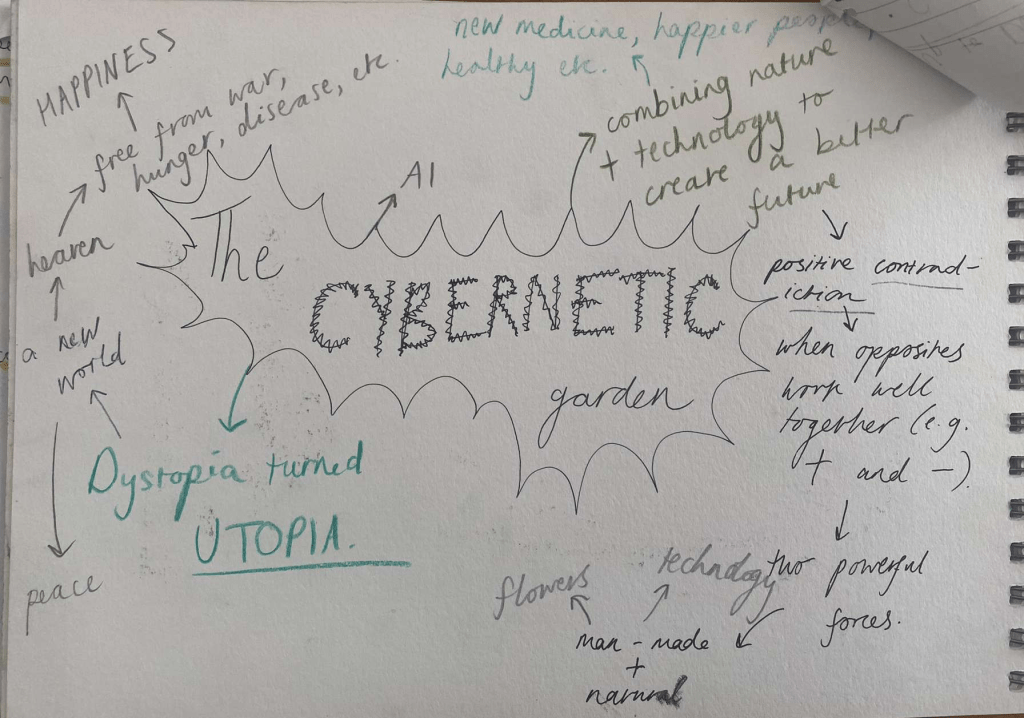 HAPPINESS
free from war,
hunger, disease, etc.
heaven
a new
world
peace
new medicine, happier people,
healthy etc.
combining nature
+ technology to
create a better
future
AI
The
CYBERNETIC
garden
Dystopia turned
UTOPIA.
positive contrad-
iction
when opposites
work well
together (e.g.
+ and -).
two powerful
forces.
man-made
+
natural
flowers
technology